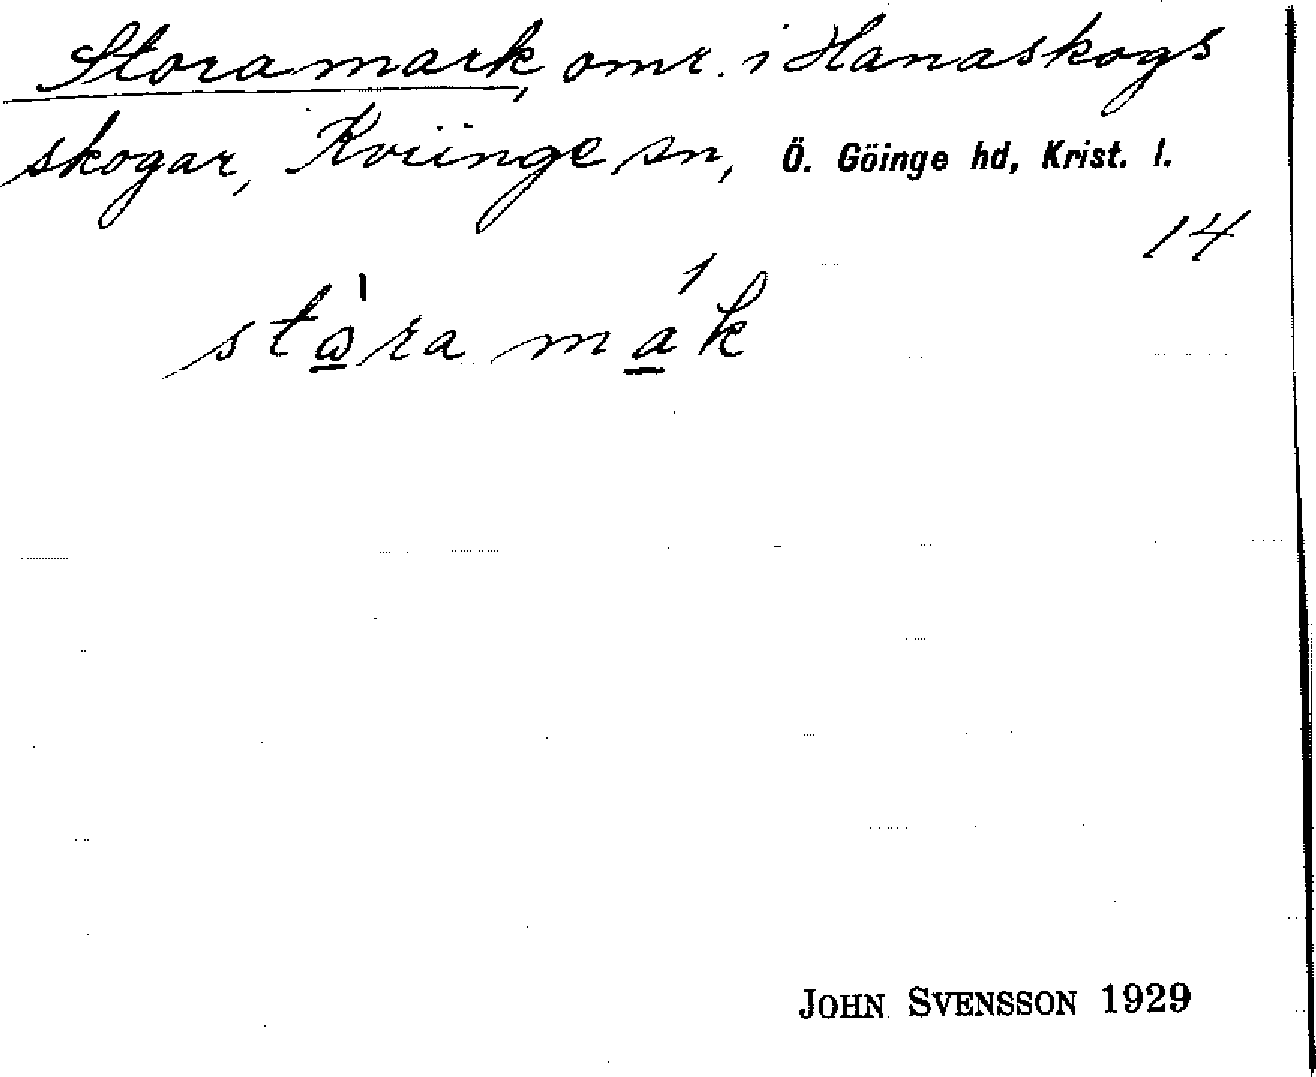 Storamark, omr. i Hanaskogs
skogar, Kviinge sn, Ö. Göinge hd, Krist. l.
14
stɷ̠̀ra má̠k
JOHN SVENSSON 1929